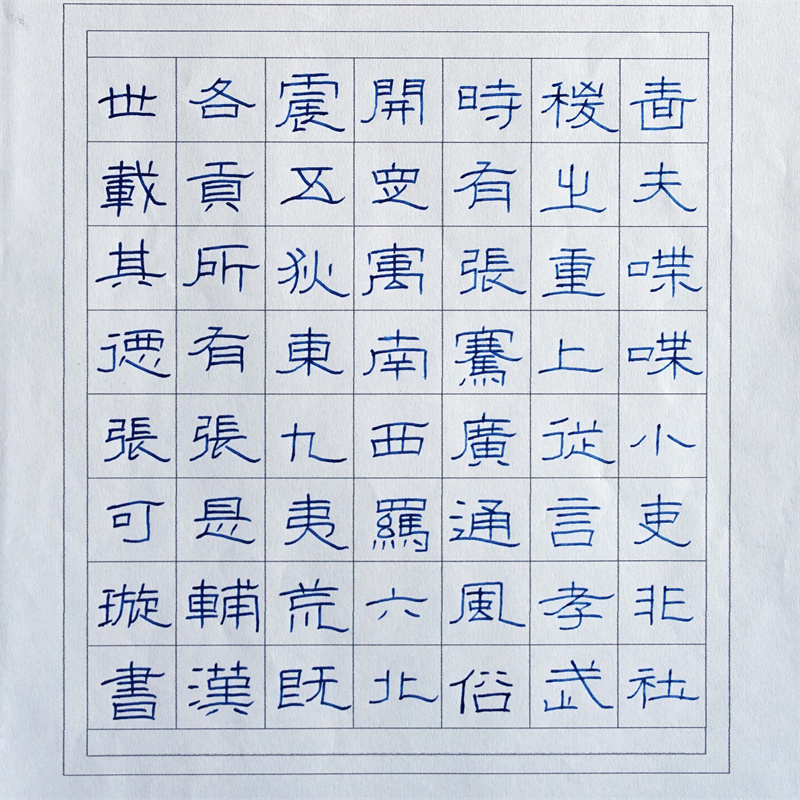 啬夫喋喋小吏非社
稷之重上從言孝武
時有張騫廣通風俗
開定寓南西羈六北
震五狄東九夷荒既
各貢所有張是輔漢
世載其德張可璇書